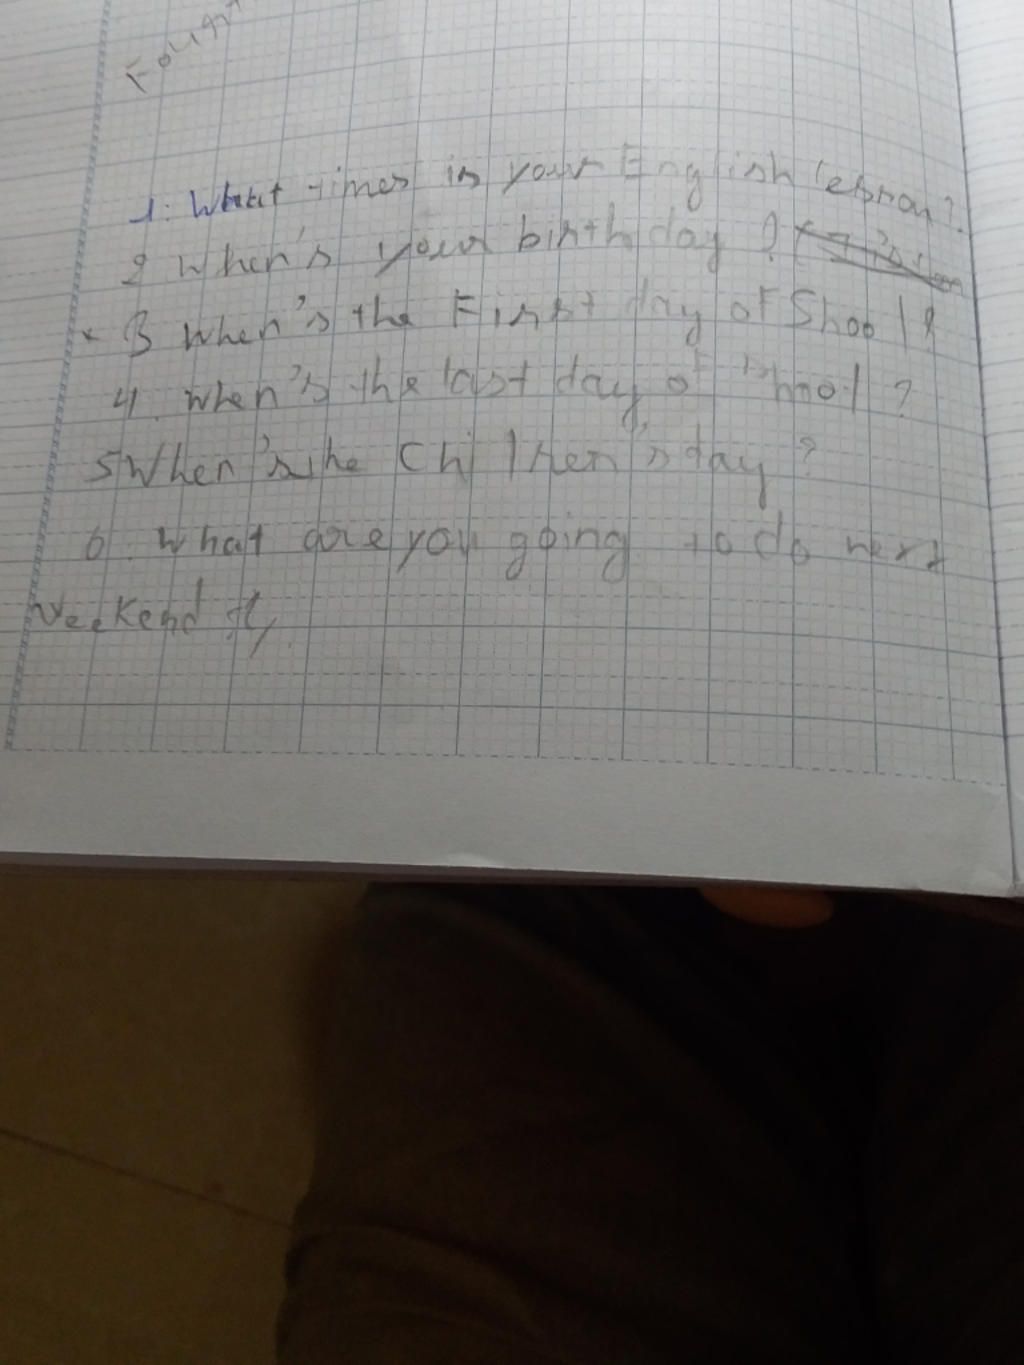 1: What times is your English lesson?
2 When's your birthday?
* 3 When's the First day of Shool?
4. When's the last day of shool?
5 When's the Chilren's day?
6. What are you going to do next
Weekend